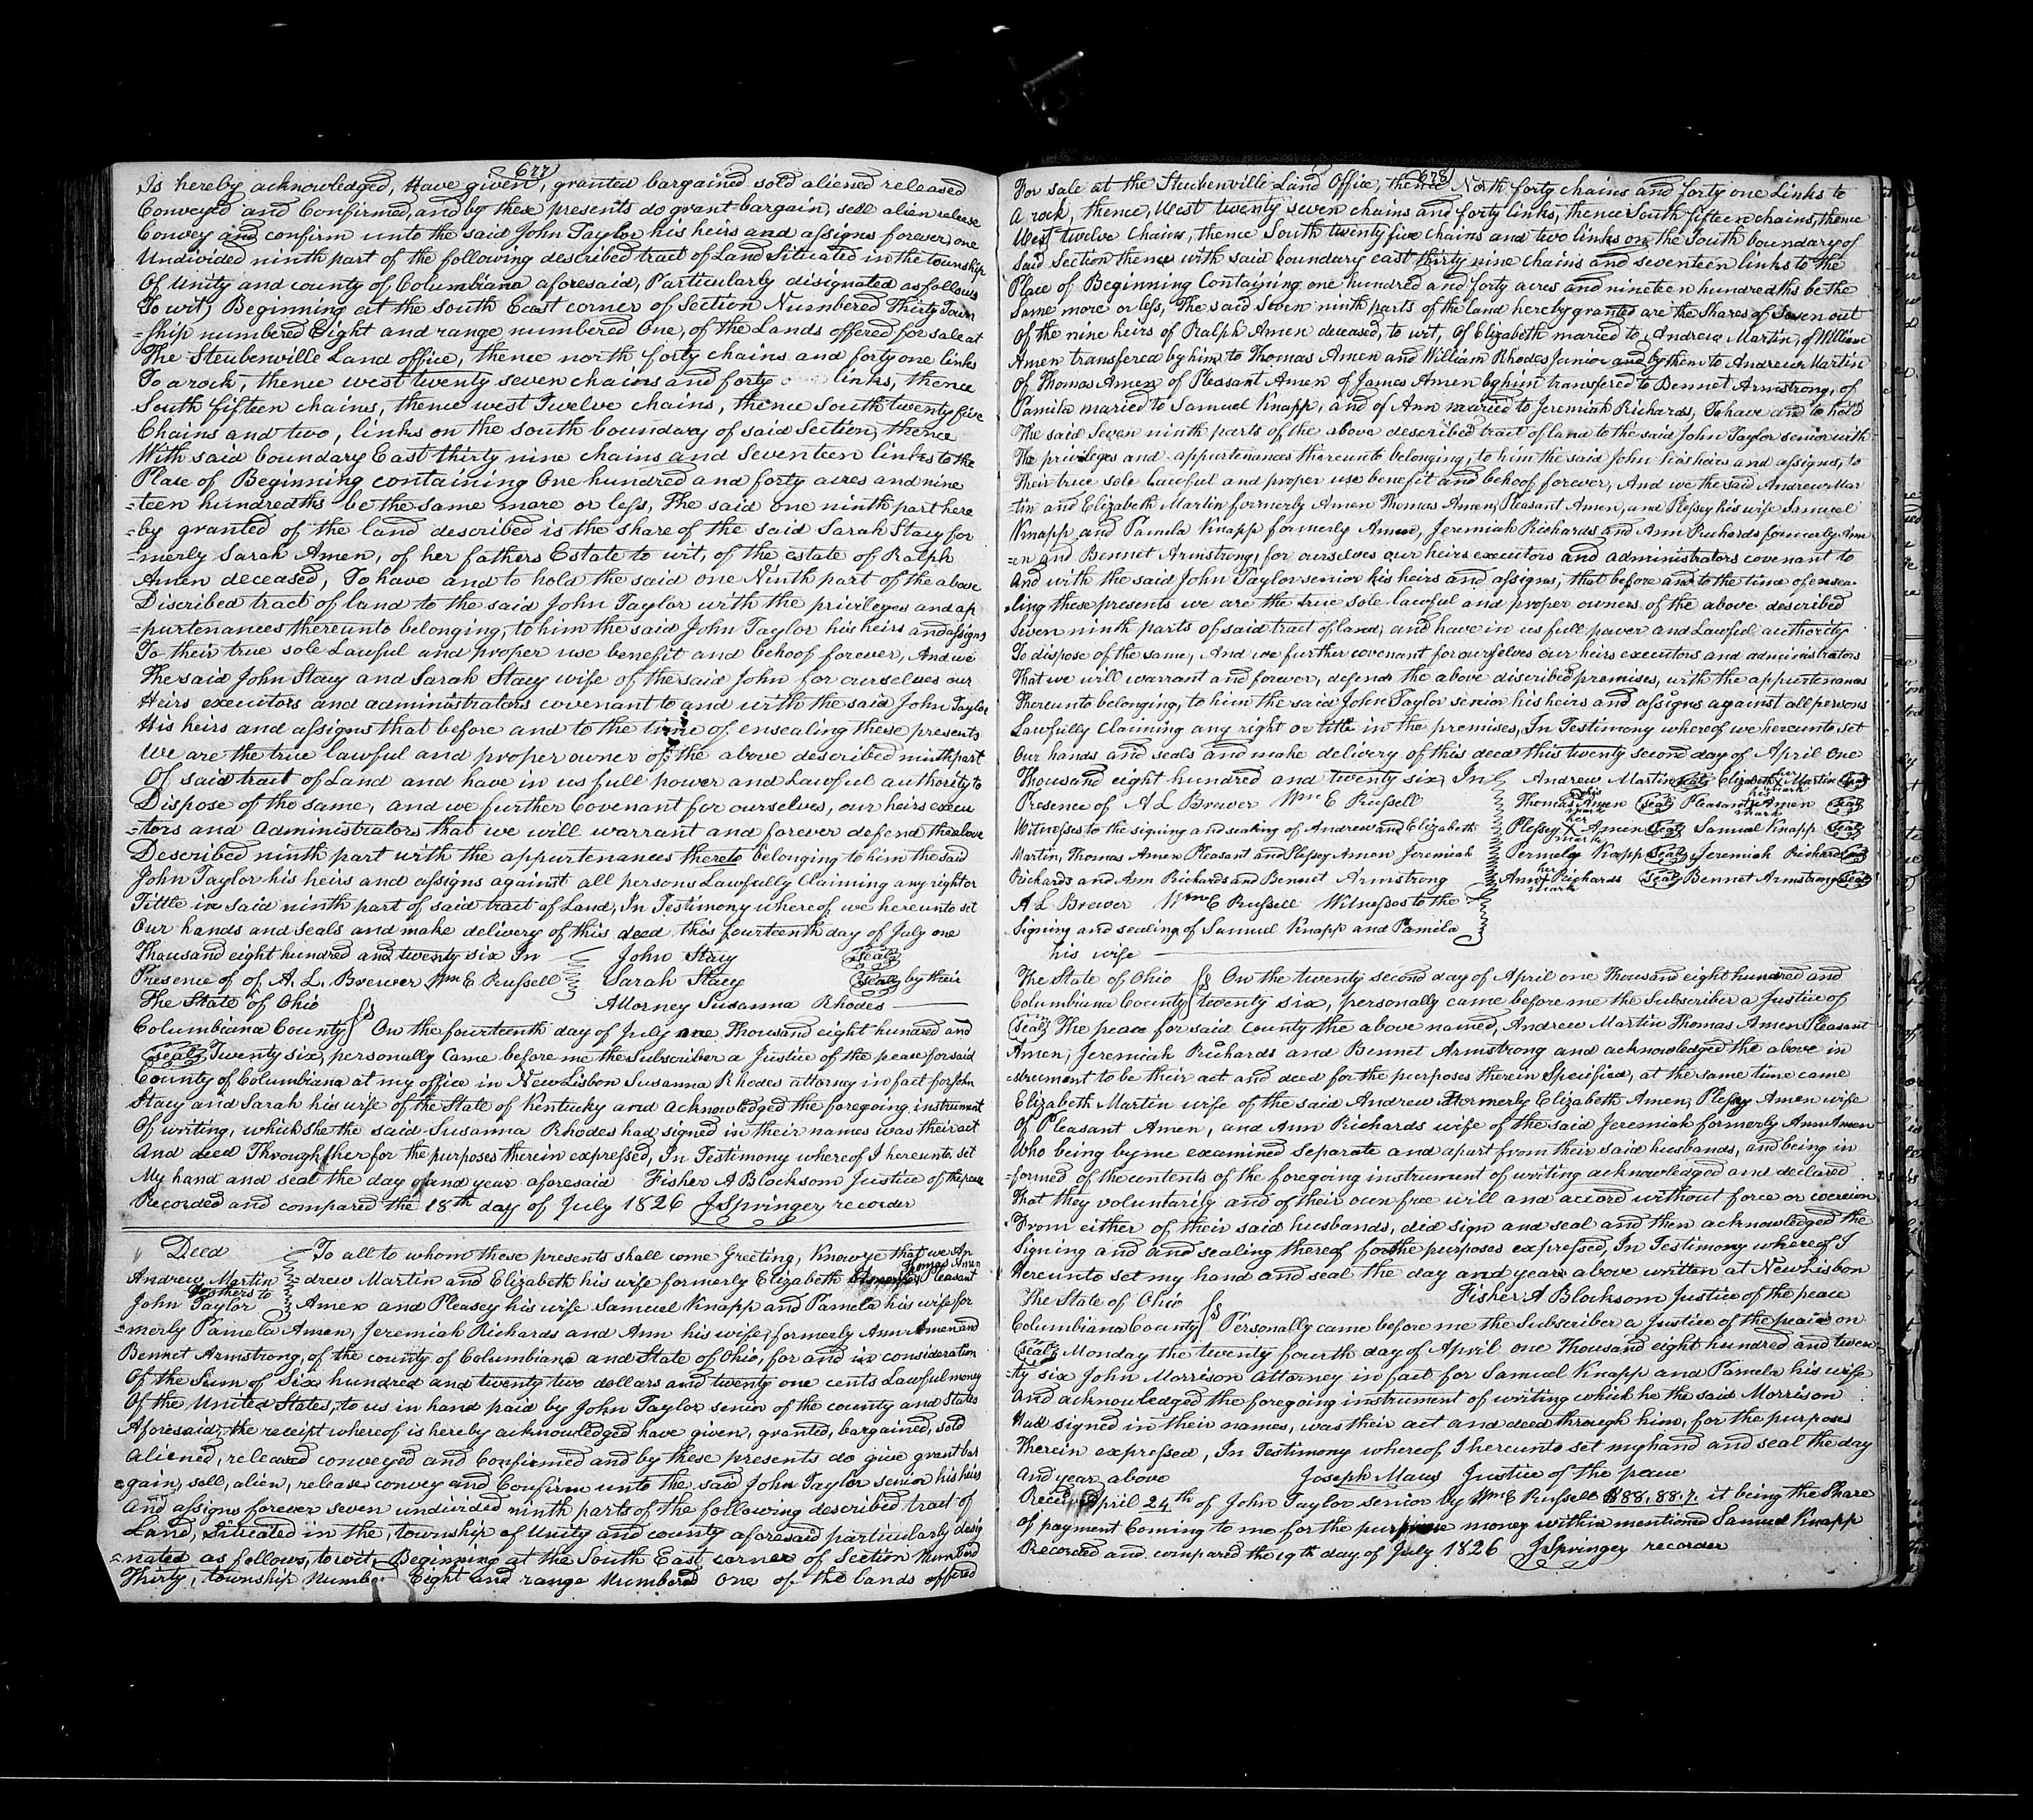 677
Is hereby acknowledged, Have given, granted bargained sold aliened released
Conveyed and Confirmed, and by these presents do grant bargain, sell alien release
Convey and confirm unto the said John Taylor his heirs and assigns forever, one
Undivided ninth part of the following described tract of Land Situated in the township
Of Unity and county of Columbiana aforesaid, Particularly disignated as follows
To wit, Beginning at the South East corner of Section Numbered Thirty Town
=ship numbered Eight and range numbered One, of the Lands offered for sale at
The Steubenville Land office, thence north forty chains and forty one links
To a rock, thence west twenty seven chains and forty links, thence
South fifteen chains, thence west Twelve chains, thence South twenty five
Chains and two, links on the South boundary of said Section, thence
With said boundary East thirty nine chains and Seventeen links to the
Place of Beginning containing One hundred and forty acres and nine
=teen hundredths be the same more or less, The said one ninth part here
=by granted of the land described is the share of the said Sarah Stacy for
=merly Sarah Amen, of her fathers Estate to wit, of the estate of Ralph
Amen deceased, To have and to hold the said one Ninth part of the above
Discribed tract of land to the said John Taylor with the privileges and ap
=purtenances thereunto belonging, to him the said John Taylor his heirs and assigns
To their true sole Lawful and proper use benefit and behoof forever, And we
The said John Stacy and Sarah Stacy wife of the said John for ourselves our
Heirs executors and administrators covenant to and with the said John Taylor
His heirs and assigns that before and to the time of ensealing these presents
We are the true lawful and proper owner of the above described ninth part
Of said tract of Land and have in us full power and Lawful authority to
Dispose of the same, and we further Covenant for ourselves, our heirs execu
=tors and Administrators that we will warrant and forever defend the above
Described ninth part with the appurtenances thereto belonging to him the said
John Taylor his heirs and assigns against all persons Lawfully Claiming any right or
Tittle in said ninth part of said tract of Land, In Testimony whereof we hereunto set
Our hands and seals and make delivery of this deed this fourteenth day of July one
Thousand eight hundred and twenty six In John Stacy Seal
Presence of of A. L. Brewer Wm E Russell Sarah Stacy Seal by their
The State of Ohio Attorney Susanna Rhodes
Columbiana County ss On the fourteenth day of July one Thousand eight hundred and
Seal Twenty six, personally Came before me the Subscriber a Justice of the peace for said
County of Columbiana at my office in New Lisbon Susanna Rhodes attorney in fact for John
Stacy and Sarah his wife of the State of Kentucky and acknowledged the foregoing instrument
Of writing, which she the said Susanna Rhodes had signed in their names was their act
And deed Through her for the purposes therein expressed, In Testimony whereof I hereunto set
My hand and seal the day and year aforesaid Fisher A Blocksom Justice of the peace
Recorded and compared the 18th day of July 1826 J Springer recorder
Deed To all to whom these presents shall come Greeting, Know ye that we An
Thomas Amen
Andrew Martin =drew Martin and Elizabeth his wife formerly Elizabeth Amen Pleasant
& others to
John Taylor Amen and Pleasey his wife Samuel Knapp and Pamela his wife for
=merly Pamela Amen, Jeremiah Richards and Ann his wife, formerly Ann Amen and
Bennet Armstrong, of the county of Columbiana and State of Ohio, for and in consideration
Of the Sum of Six hundred and twenty two dollars and twenty one cents Lawful money
Of the United States, to us in hand paid by John Taylor senior of the county and State
Aforesaid, the receipt whereof is hereby acknowledged have given, granted, bargained, sold
Aliened, released conveyed and Confirmed and by these presents do give grant bar
=gain, sell, alien, release convey and Confirm unto the said John Taylor senior his heirs
And assigns forever seven undivided ninth parts of the following described tract of
Land, Situated in the, township of Unity and county aforesaid particularly desig
=nated as follows, to wit, Beginning at the South East corner of Section Numbered
Thirty, township Number Eight and range Numbered One of the lands offered
678
For sale at the Steubenville Land Office, thence North forty chains and forty one Links to
A rock, thence, West twenty seven chains and forty links, thence South fifteen chains, thence
West twelve Chains, thence South twenty five Chains and two links on the South boundary of
Said Section thence with said boundary east thirty nine chains and seventeen links to the
Place of Beginning Containing one hundred and forty acres and nineteen hundredths be the
Same more or less, The said Seven ninth parts of the land hereby granted are the Shares of Seven out
Of the nine heirs of Ralph Amen deceased, to wit, of Elizabeth maried to Andrew Martin, of William
Amen transfered by him to Thomas Amen and William Rhodes Junior and by them to Andrew Martin
Of Thomas Amen, of Pleasant Amen of James Amen by him transfered to Bennet Armstrong, of
Pamila maried to Samuel Knapp, and of Ann maried to Jeremiah Richards, To have and to hold
The said Seven ninth parts of the above described tract of land to the said John Taylor senior with
The privileges and appurtenances thereunto belonging, to him the said John his heirs and assigns, to
Their true sole Lawful and proper use benefit and behoof forever, And we the said Andrew Mar
=tin and Elizabeth Martin formerly Amen Thomas Amen, Pleasant Amen, and Plessey his wife Samuel
Knapp and Pamela Knapp formerly Amen, Jeremiah Richards and Ann Richards formerly Am
=en and Bennet Armstrong, for ourselves our heirs executors and administrators covenant to
And with the said John Taylor senior his heirs and assigns, that before and to the time of ensea
=ling these presents we are the true sole lawful and proper owners of the above described
Seven ninth parts of said tract of land, and have in us full power and Lawful authority
To dispose of the same, And we further covenant for ourselves our heirs executors and administrators
That we will warrant and forever, defend the above discribed premises, with the appurtenances
Thereunto belonging, to him the said John Taylor senior his heirs and assigns against all persons
Lawfully Claiming any right or title in the premises, In Testimony whereof we hereunto set
Our hands and seals and make delivery of this deed this twenty second day of April One
Thousand eight hundred and twenty six, In Andrew Martin Seal Elizabeth her mark Martin Seal
Presence of A L Brewer Wm E Russell Thomas his mark Amen Seal Pleasant his mark Amen Seal
Witnesses to the signing and sealing of Andrew and Elizabeth Plessey her X mark Amen Seal Samuel Knapp Seal
Martin, Thomas Amen Pleasant and Plessey Amen Jeremiah Permely Knapp Seal Jeremiah Richards Seal
Richards and Ann Richards and Bennet Armstrong Ann her mark Richards Seal Bennet Armstrong Seal
A L Brewer Wm E Russell Witnesses to the
Signing and sealing of Samuel Knapp and Pamila
his wife
The State of Ohio ss On the twenty second day of April one Thousand eight hundred and
Columbiana County twenty six, personally came before me the Subscriber a Justice of
Seal The peace for said County the above named, Andrew Martin Thomas Amen Pleasant
Amen, Jeremiah Richards and Bennet Armstrong and acknowledged the above in
=strument to be their act and deed for the purposes therein Specified, at the same time came
Elizabeth Martin wife of the said Andrew formerly Elizabeth Amen, Plessy Amen wife
Of Pleasant Amen, and Ann Richards wife of the said Jeremiah formerly Ann Amen
Who being by me examined Separate and apart from their said husbands, and being in
=formed of the contents of the foregoing instrument of writing acknowledged and declared
That they voluntarily and of their own free will and accord without force or coercion
From either of their said husbands, did sign and seal and then acknowledged the
Signing and and sealing thereof for the purposes expressed, In Testimony whereof I
Hereunto set my hand and seal the day and year above written at New Lisbon
The State of Ohio Fisher A Blocksom Justice of the peace
Columbiana County ss Personally came before me the Subscriber a Justice of the peace on
Seal Monday the twenty fourth day of April one Thousand eight hundred and twen
=ty six John Morrison attorney in fact for Samuel Knapp and Pamela his wife
And acknowledged the foregoing instrument of writing which he the said Morrison
Had signed in their names, was their act and deed through him, for the purposes
Therein expressed, In Testimony whereof I hereunto set my hand and seal the day
And year above Joseph Maus Justice of the peace
April 24th of John Taylor senior by Wm E Russell $88.88.7. it being the share
of payment Coming to me for the money within mentioned Samuel Knapp
Recorded and compared the 19th day of July 1826 J Springer recorder